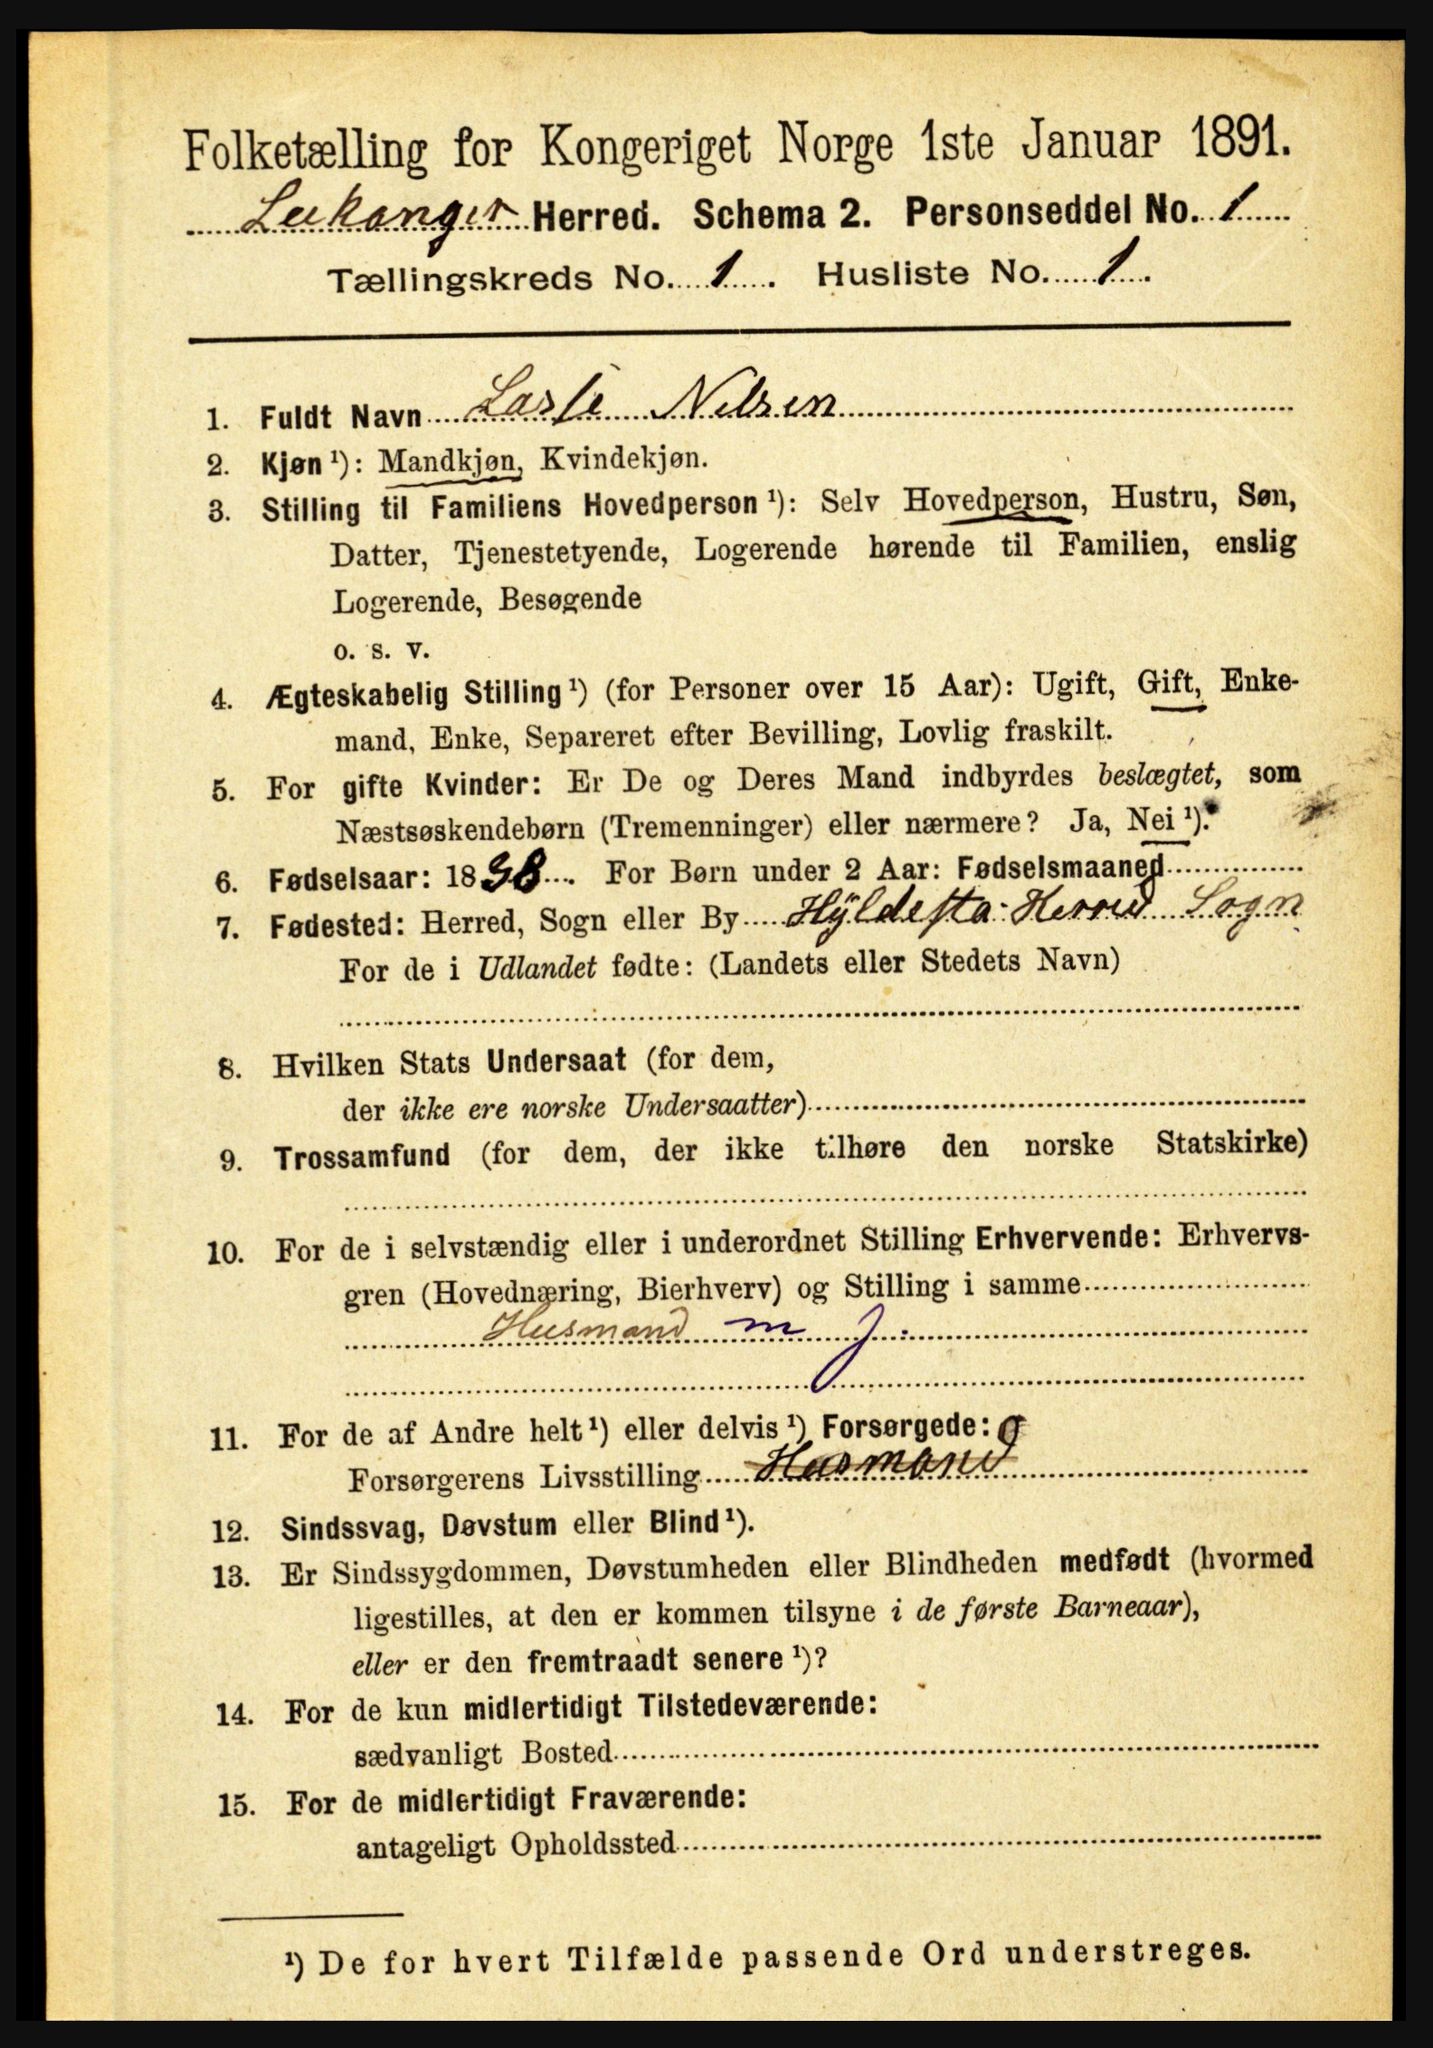 Folketælling for Kongeriget Norge 1ste Januar 1891.
Leikanger Herred. Schema 2. Personseddel No. 1
Tællingskreds No. 1. Husliste No. 1.
1. Fuldt Navn Lasse Nilsen
2. Kjøn ¹): Mandkjøn, Kvindekjøn.
3. Stilling til Familiens Hovedperson ¹): Selv Hovedperson, Hustru, Søn,
Datter, Tjenestetyende, Logerende hørende til Familien, enslig
Logerende, Besøgende
o. s. v.
4. Ægteskabelig Stilling ¹) (for Personer over 15 Aar): Ugift, Gift, Enke-
mand, Enke, Separeret efter Bevilling, Lovlig fraskilt.
5. For gifte Kvinder: Er De og Deres Mand indbyrdes beslægtet, som
Næstsøskendebørn (Tremenninger) eller nærmere? Ja, Nei ¹).
6. Fødselsaar: 1838. For Børn under 2 Aar: Fødselsmaaned
7. Fødested: Herred, Sogn eller By Hyldesta Herred Sogn
For de i Udlandet fødte: (Landets eller Stedets Navn)
8. Hvilken Stats Undersaat (for dem,
der ikke ere norske Undersaatter)
9. Trossamfund (for dem, der ikke tilhøre den norske Statskirke)
10. For de i selvstændig eller i underordnet Stilling Erhvervende: Erhvervs-
gren (Hovednæring, Bierhverv) og Stilling i samme
Husmand m j.
11. For de af Andre helt ¹) eller delvis ¹) Forsørgede:
Forsørgerens Livsstilling Husmand
12. Sindssvag, Døvstum eller Blind ¹).
13. Er Sindssygdommen, Døvstumheden eller Blindheden medfødt (hvormed
ligestilles, at den er kommen tilsyne i de første Barneaar),
eller er den fremtraadt senere ¹)?
14. For de kun midlertidigt Tilstedeværende:
sædvanligt Bosted
15. For de midlertidigt Fraværende:
antageligt Opholdssted
¹) De for hvert Tilfælde passende Ord understreges.